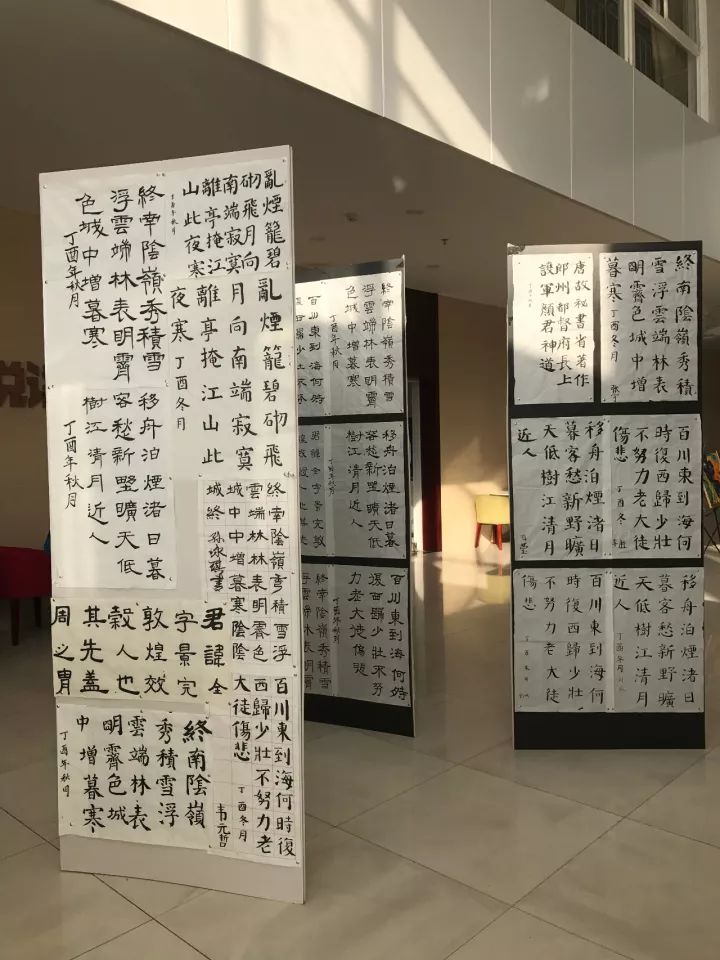 亂煙籠碧
砌飛月向
南端寂寞
離亭掩江
山此夜寒
丁酉年秋月
終南陰嶺秀積雪
浮雲端林表明霽
色城中增暮寒
丁酉年秋月
亂煙籠碧砌飛
月向南端寂寞
離亭掩江山此
夜寒
丁酉冬月
移舟泊煙渚日暮
客愁新野曠天低
樹江清月近人
丁酉年秋月
終南陰嶺秀積雪浮
雲端林林表明霽色
城中中增暮寒陰陰
城終
君諱全
字景完
敦煌效
穀人也
其先蓋
周之胄
百川東到海何時復
西歸少壯不努力老
大徒傷悲
丁酉冬月
韦元哲
終南陰嶺
秀積雪浮
雲端林表
明霽色城
中增暮寒
丁酉年秋月
終南陰嶺秀積雪
浮雲端林表明霽
色城中增暮寒
丁酉年秋月
百川東到海何時
移舟泊煙渚日暮
客愁新野曠天低
樹江清月近人
丁酉年秋月
百川東到海何時
復西歸少壯不努
力老大徒傷悲
丁酉年秋月
終南陰嶺秀積雪
浮雲端林表明霽
終南陰嶺秀積
雪浮雲端林表
明霽色城中增
暮寒
丁酉冬月
唐故秘書省著作
郎州都督府長上
護軍顏君神道
百川東到海何
時復西歸少壯
不努力老大徒
傷悲
丁酉冬
移舟泊煙渚日
暮客愁新野曠
天低樹江清月
近人
移舟泊煙渚日
暮客愁新野曠
天低樹江清月
近人
丁酉年月
百川東到海何
時復西歸少壯
不努力老大徒
傷悲